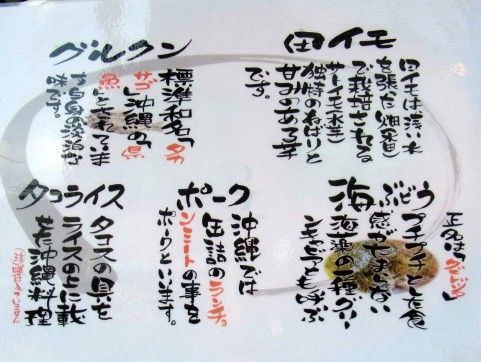 田イモ
田イモは浅い水
を張った畑(田)
で栽培される
サトイモ(水芋)
独特のねばりと
甘みのある芋
です。
グルクン
標準和名「タカ
サゴ」沖縄の「県
魚」とされていま
す白身の淡泊な
味です。
海ぶどう
正名は「クビレヅタ」
プチプチとした食
感がたまらない
海藻の一種グリー
ンキャビアとも呼ぶ
ポーク
沖縄では
缶詰のランチョ
ンミートの事を
ポークといいます。
タコライス
タコスの具を
ライスの上に載
せた沖縄料理